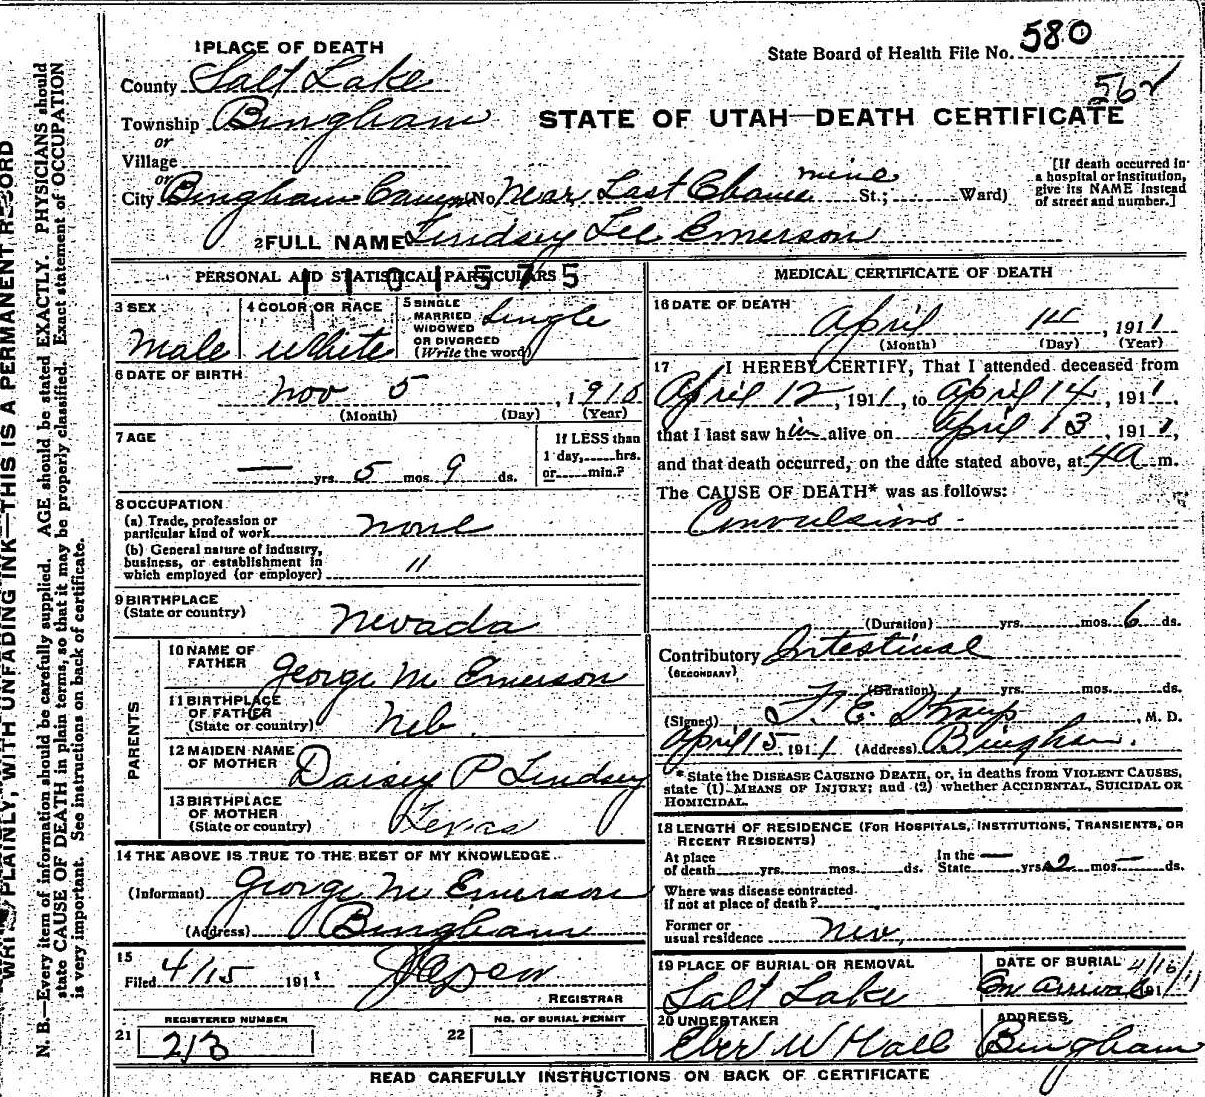 WRITE PLAINLY, WITH UNFADING INK—THIS IS A PERMANENT RECORD
N. B.—Every item of information should be carefully supplied. AGE should be stated EXACTLY. PHYSICIANS should
state CAUSE OF DEATH in plain terms, so that it may be properly classified. Exact statement of OCCUPATION
is very important. See instructions on back of certificate.
1 PLACE OF DEATH
State Board of Health File No. 580
County Salt Lake
562
Township Bingham
STATE OF UTAH—DEATH CERTIFICATE
or
Village
or
City Bingham Canyon No. Near Last Chance mine St.; Ward)
[If death occurred in
a hospital or institution,
give its NAME instead
of street and number.]
2 FULL NAME Lindsey Lee Emerson
PERSONAL AND STATISTICAL PARTICULARS
1101575
3 SEX
Male
4 COLOR OR RACE
White
5 SINGLE
MARRIED
WIDOWED
OR DIVORCED
(Write the word)
Single
6 DATE OF BIRTH
Nov 5, 1910
(Month) (Day) (Year)
7 AGE
— yrs. 5 mos. 9 ds.
If LESS than
1 day, hrs.
or min.?
8 OCCUPATION
(a) Trade, profession or
particular kind of work none
(b) General nature of industry,
business, or establishment in
which employed (or employer) "
9 BIRTHPLACE
(State or country)
Nevada
PARENTS
10 NAME OF
FATHER
George M Emerson
11 BIRTHPLACE
OF FATHER
(State or country)
Neb.
12 MAIDEN NAME
OF MOTHER
Daisey P Lindsey
13 BIRTHPLACE
OF MOTHER
(State or country)
Texas
14 THE ABOVE IS TRUE TO THE BEST OF MY KNOWLEDGE
(Informant) George M Emerson
(Address) Bingham
15
Filed 4/15 1911
REGISTRAR
REGISTERED NUMBER
21 213
NO. OF BURIAL PERMIT
22
MEDICAL CERTIFICATE OF DEATH
16 DATE OF DEATH
April 14, 1911
(Month) (Day) (Year)
17 I HEREBY CERTIFY, That I attended deceased from
April 12, 1911, to April 14, 1911,
that I last saw him alive on April 13, 1911,
and that death occurred, on the date stated above, at 4 a m.
The CAUSE OF DEATH* was as follows:
Convulsions
(Duration) yrs. mos. 6 ds.
Contributory Intestinal
(SECONDARY)
(Duration) yrs. mos. ds.
(Signed) F. E. Straup, M. D.
April 15 1911 (Address) Bingham.
* State the DISEASE CAUSING DEATH, or, in deaths from VIOLENT CAUSES,
state (1) MEANS OF INJURY; and (2) whether ACCIDENTAL, SUICIDAL OR
HOMICIDAL.
18 LENGTH OF RESIDENCE (FOR HOSPITALS, INSTITUTIONS, TRANSIENTS, OR
RECENT RESIDENTS)
At place
of death yrs. mos. ds.
In the
State — yrs 2 mos — ds.
Where was disease contracted
if not at place of death?
Former or
usual residence Nev.
19 PLACE OF BURIAL OR REMOVAL
Salt Lake
DATE OF BURIAL 4/16/11
On arrival 191
20 UNDERTAKER
Eber W Hall
ADDRESS
Bingham
READ CAREFULLY INSTRUCTIONS ON BACK OF CERTIFICATE